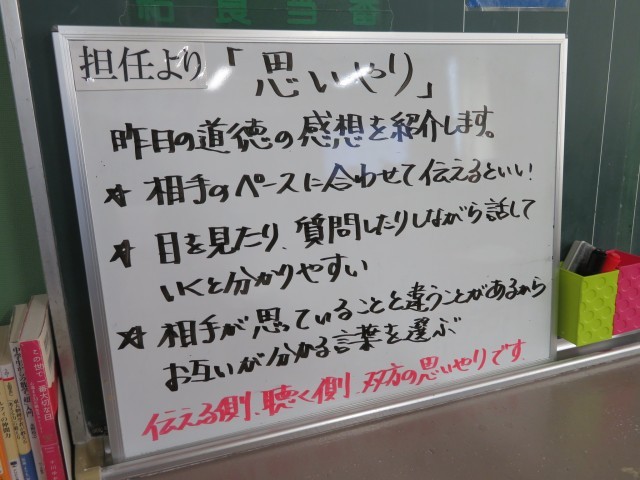 担任より「思いやり」
昨日の道徳の感想を紹介します。
☆ 相手のペースに合わせて伝えるといい!
☆ 目を見たり、質問したりしながら話して
いくと分かりやすい
☆ 相手が思っていることと違うことがあるから
お互いが分かる言葉を選ぶ
伝える側、聴く側、双方の思いやりです